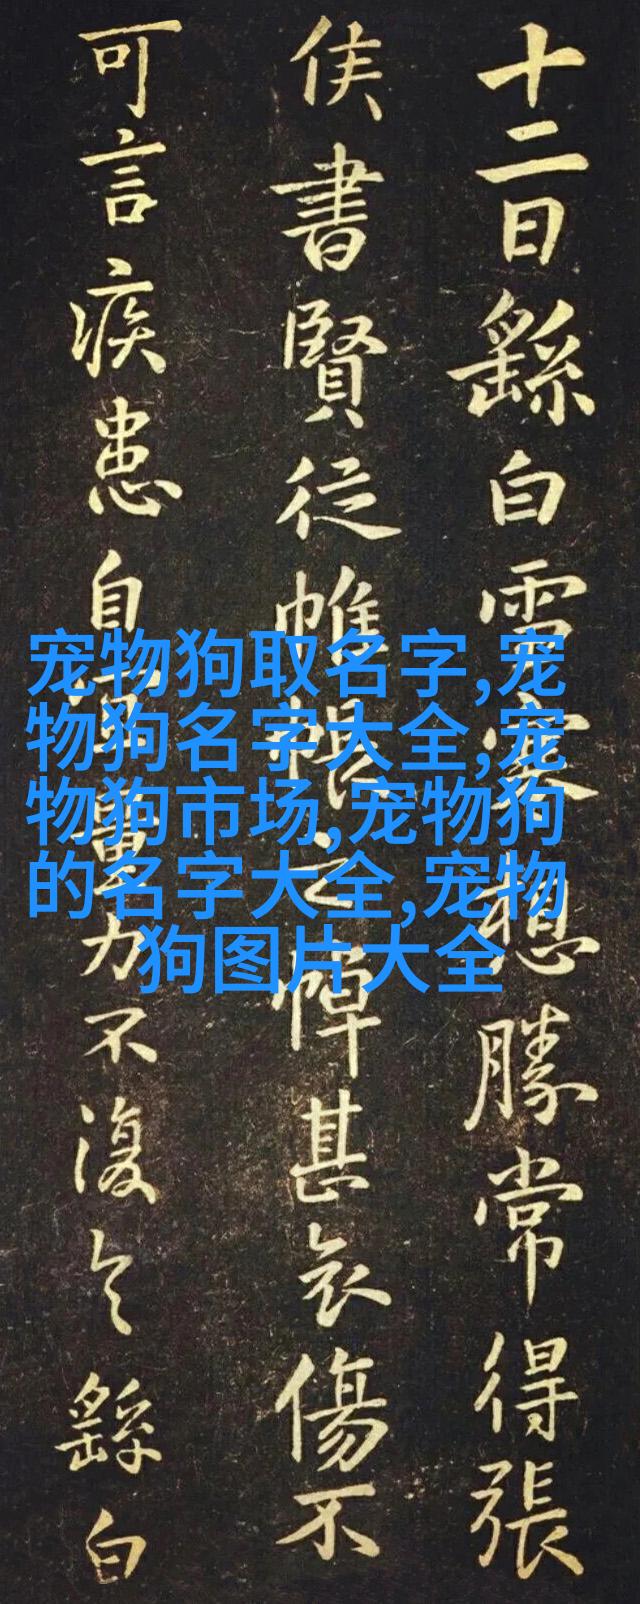 十二日繇白雪寒想勝常得張
侯書賢從帷帳之悼甚哀傷不
可言疾患自量力不復繇白
宠物狗取名字,宠
物狗名字大全,宠
物狗市场,宠物狗
的名字大全,宠物
狗图片大全